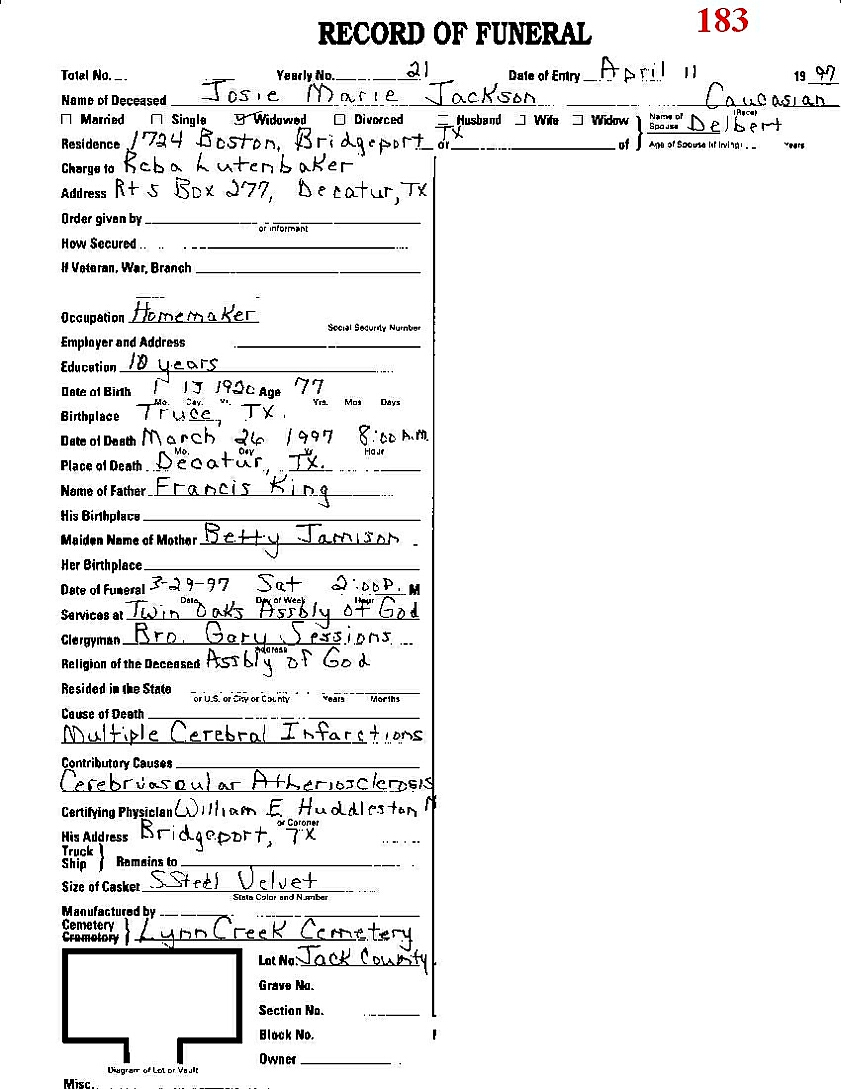 183
RECORD OF FUNERAL
Total No. Yearly No. 21 Date of Entry April 11 1997
Name of Deceased Josie Marie Jackson Caucasian
(Race)
Married Single Widowed Divorced Husband Wife Widow Name of Spouse Delbert
Residence 1724 Boston, Bridgeport TX or of Age of Spouse (if living) Years
Charge to Reba Lutenbaker
Address Rt 5 Box 277, Decatur, TX
Order given by
or informant
How Secured
If Veteran, War, Branch
Occupation Homemaker
Social Security Number
Employer and Address
Education 10 years
Date of Birth 13 1920 Age 77
Mo. Day. Yr. Yrs. Mos Days
Birthplace Truce, TX.
Date of Death March 26 1997 8:00 A.M.
Mo. Day Yr Hour
Place of Death Decatur, TX.
Name of Father Francis King
His Birthplace
Maiden Name of Mother Betty Jamison
Her Birthplace
Date of Funeral 3-29-97 Sat 2:00 P. M
Date Day of Week Hour
Services at Twin Oaks Assbly of God
Clergyman Bro. Gary Sessions
Address
Religion of the Deceased Assbly of God
Resided in the State
or U.S. or City or County Years Months
Cause of Death
Multiple Cerebral Infarctions
Contributory Causes
Cerebrvascular Atheriosclerosis
Certifying Physician William E Huddleston M
or Coroner
His Address Bridgeport, TX
Truck
Ship Remains to
Size of Casket SSteel Velvet
State Color and Number
Manufactured by
Cemetery
Crematory Lynn Creek Cemetery
Lot No. Jack County
Grave No.
Section No.
Block No.
Owner
Diagram of Lot or Vault
Misc.